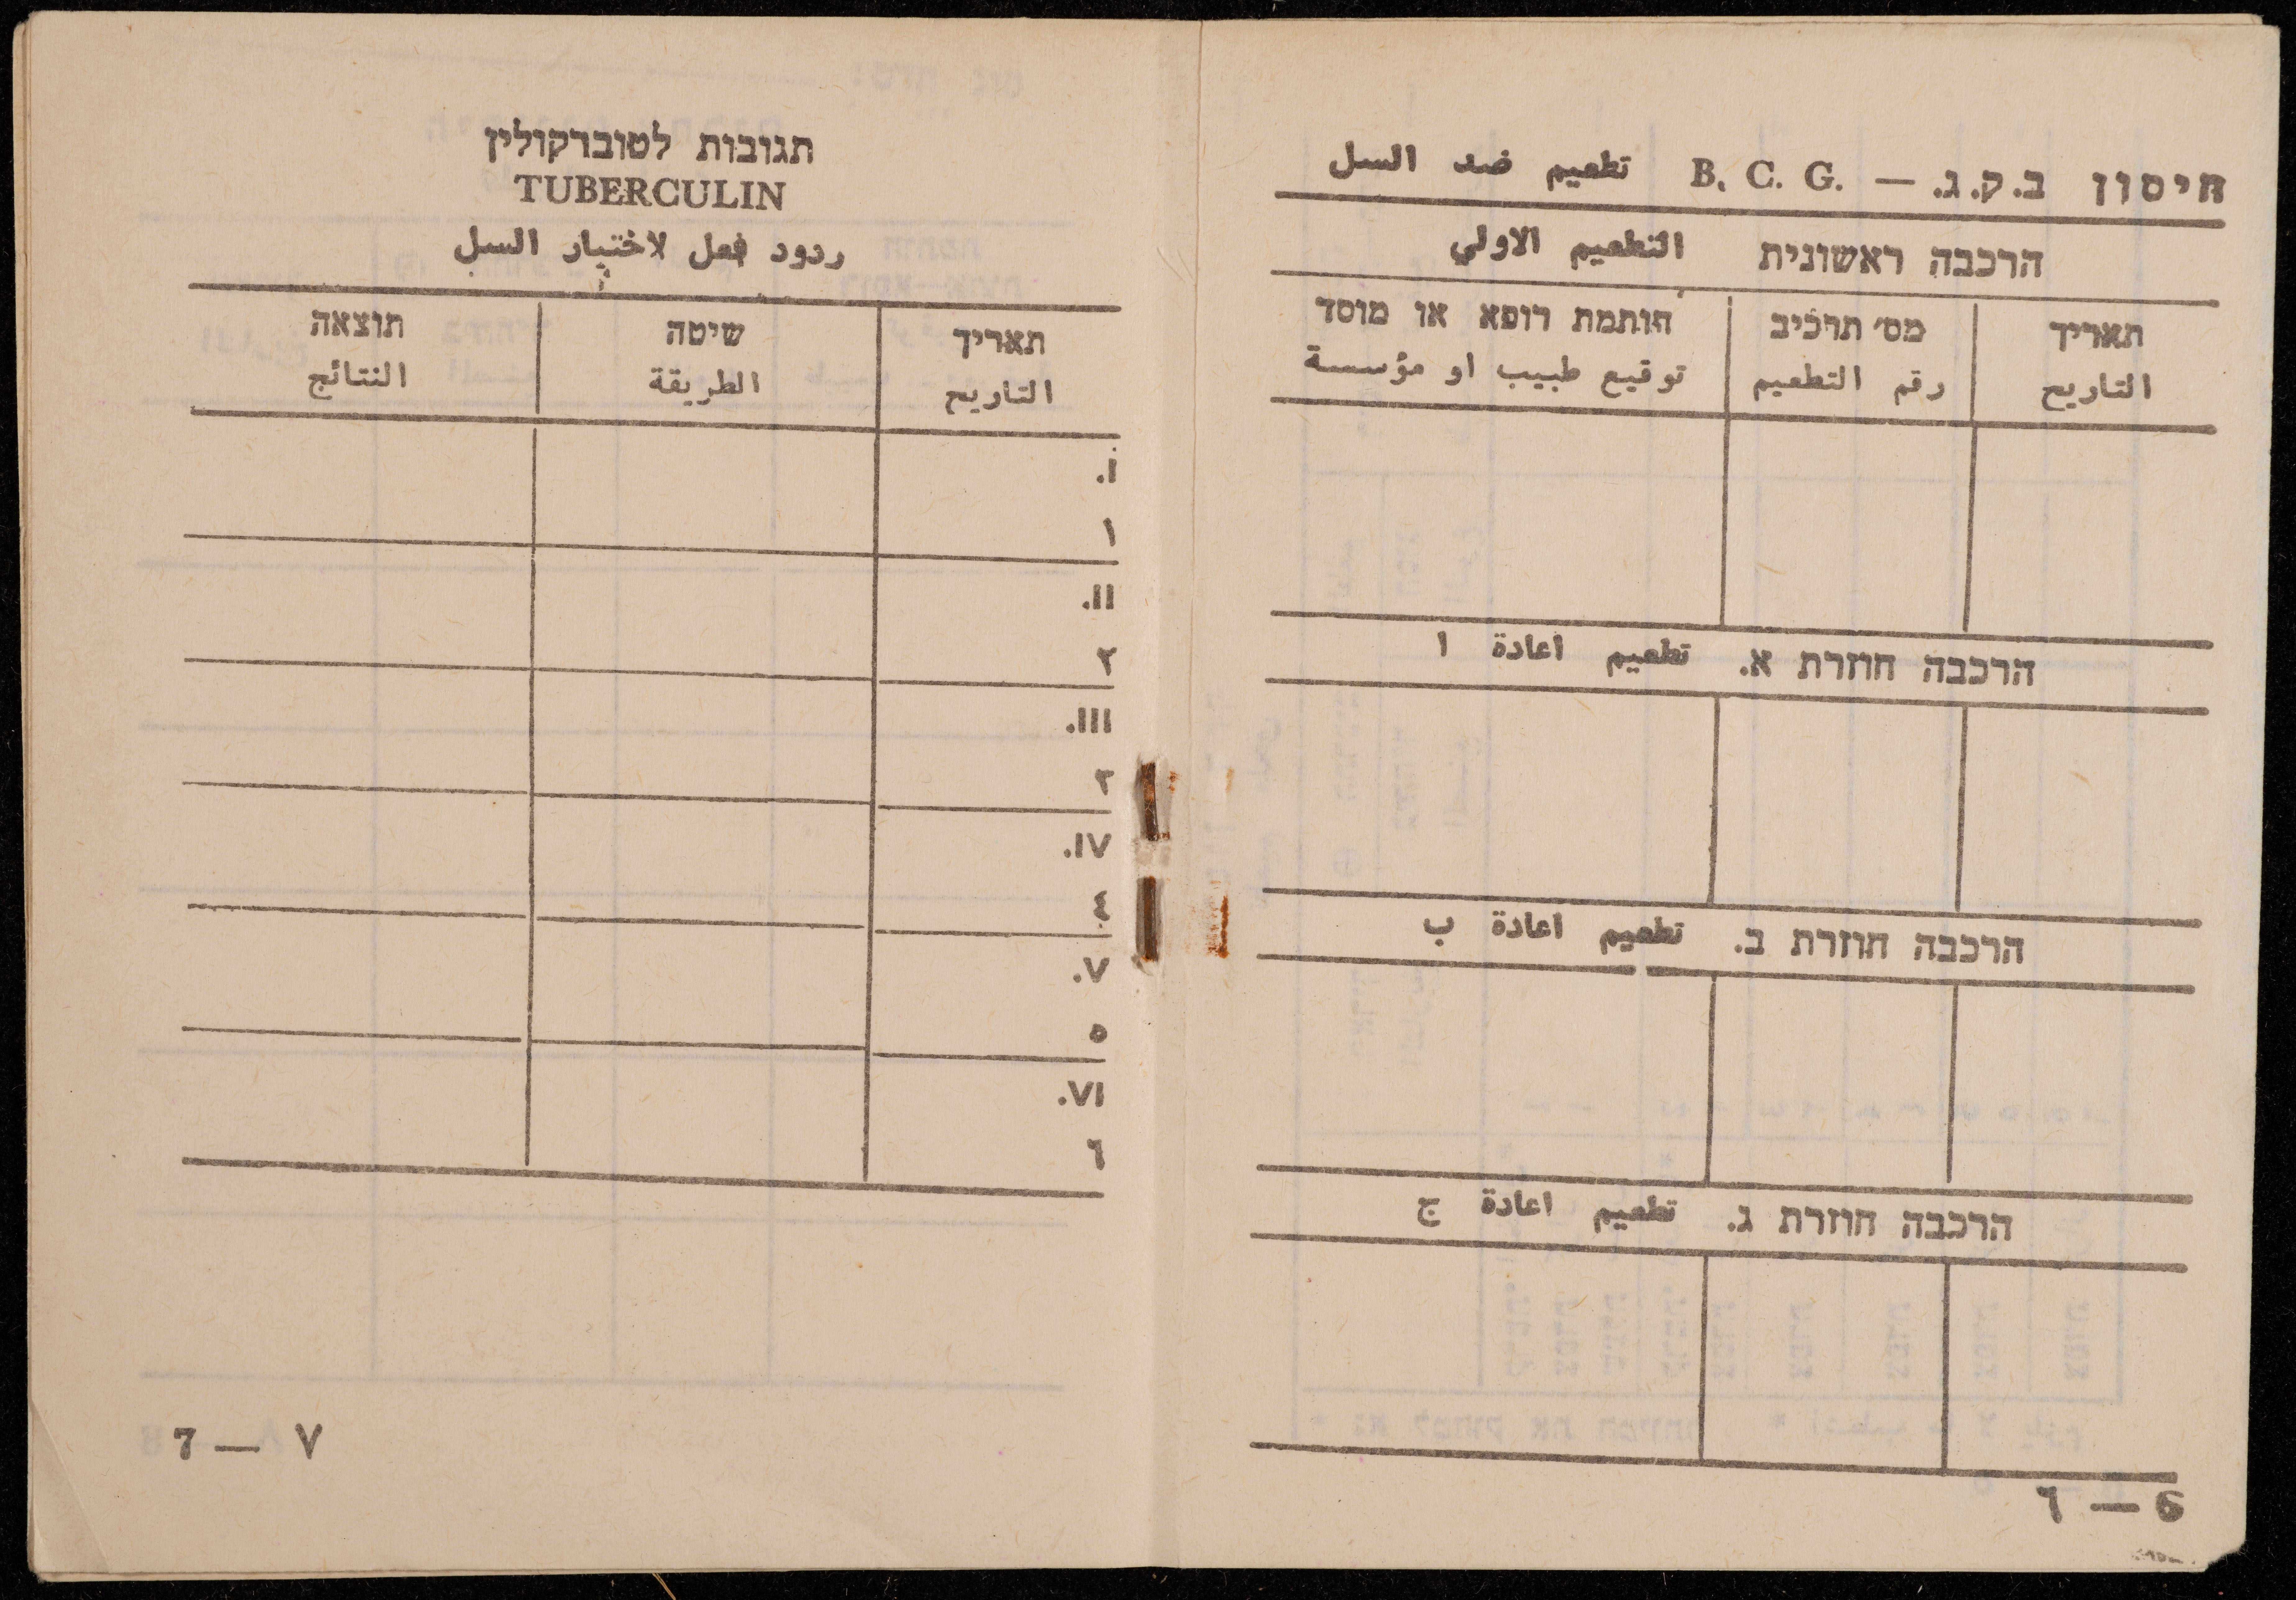 חיסון ב.ק.ג. — B. C. G. تطعيم ضد السل
הרכבה ראשונית التطعيم الاولي
תאריך מס׳ תרכיב חותמת רופא או מוסד
التاريخ رقم التطعيم توقيع طبيب او مؤسسة
הרכבה חוזרת א. تطعيم اعادة ا
הרכבה חוזרת ב. تطعيم اعادة ب
הרכבה חוזרת ג. تطعيم اعادة ج
6 — ٦
תגובות לטוברקולין
TUBERCULIN
ردود فعل لاختبار السل
תאריך שיטה תוצאה
التاريخ الطريقة النتائج
.I
١
.II
٢
.III
٣
.IV
٤
.V
٥
.VI
٦
7 — ٧